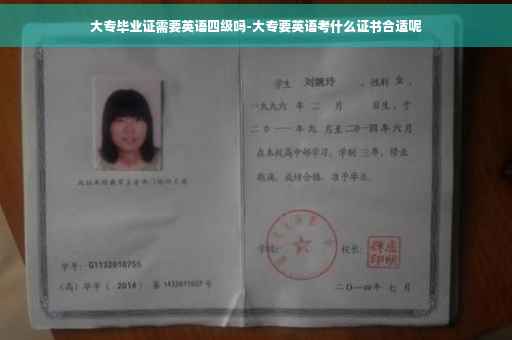 大专毕业证需要英语四级吗-大专要英语考什么证书合适呢
学生 刘婉玲 ，性别 女 ，
一九九六 年 二 月 日生，于
二〇一一 年 九 月至 二〇一四 年 六 月
在本校高中部学习，学制 三 年，修业
期满，成绩合格，准予毕业。
学校： 校长：
学号： G1132010755
（高）毕字（ 2014 ）第 1432011027 号
二〇一四年 七 月